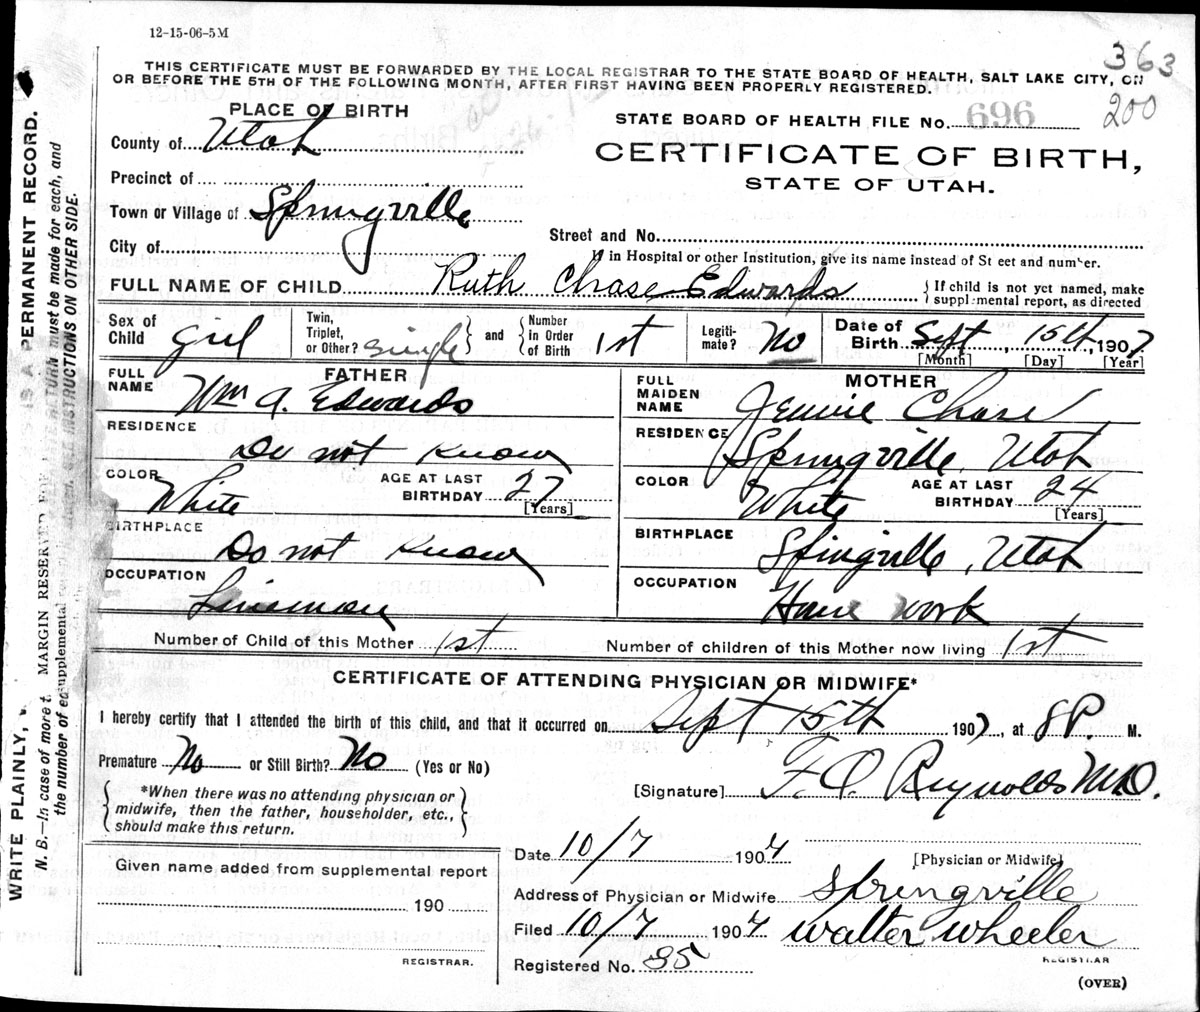 12-15-06-5M
363
THIS CERTIFICATE MUST BE FORWARDED BY THE LOCAL REGISTRAR TO THE STATE BOARD OF HEALTH, SALT LAKE CITY, ON
OR BEFORE THE 5TH OF THE FOLLOWING MONTH, AFTER FIRST HAVING BEEN PROPERLY REGISTERED.
200
PLACE OF BIRTH
STATE BOARD OF HEALTH FILE No. 696
County of Utah
CERTIFICATE OF BIRTH,
STATE OF UTAH.
Precinct of
Town or Village of Springville
Street and No.
City of
If in Hospital or other Institution, give its name instead of Street and number.
FULL NAME OF CHILD Ruth Chase Edwards
{ If child is not yet named, make supplemental report, as directed
Sex of Child girl
Twin, Triplet, or Other? single } and { Number in Order of Birth 1st
Legitimate? No
Date of Birth Sept 15th 1907
[Month] [Day] [Year]
FATHER
FULL NAME Wm A. Edwards
RESIDENCE Do not know
COLOR White
AGE AT LAST BIRTHDAY 27 [Years]
BIRTHPLACE Do not know
OCCUPATION Lineman
MOTHER
FULL MAIDEN NAME Jennie Chase
RESIDENCE Springville, Utah
COLOR White
AGE AT LAST BIRTHDAY 24 [Years]
BIRTHPLACE Springville, Utah
OCCUPATION House work
Number of Child of this Mother 1st
Number of children of this Mother now living 1st
CERTIFICATE OF ATTENDING PHYSICIAN OR MIDWIFE*
I hereby certify that I attended the birth of this child, and that it occurred on Sept 15th 1907, at 8 P. M.
Premature No or Still Birth? No (Yes or No)
[Signature] F. O. Reynolds M.D.
{ *When there was no attending physician or midwife, then the father, householder, etc., should make this return. }
Date 10/7 1907
[Physician or Midwife]
Given name added from supplemental report
190
REGISTRAR.
Address of Physician or Midwife Springville
Filed 10/7 1907 Walter Wheeler
REGISTRAR
Registered No. 85
(OVER)
WRITE PLAINLY,
IS A PERMANENT RECORD.
MARGIN RESERVED
N. B.—In case of more
RETURN must be made for each, and
the number of
SEE INSTRUCTIONS ON OTHER SIDE.